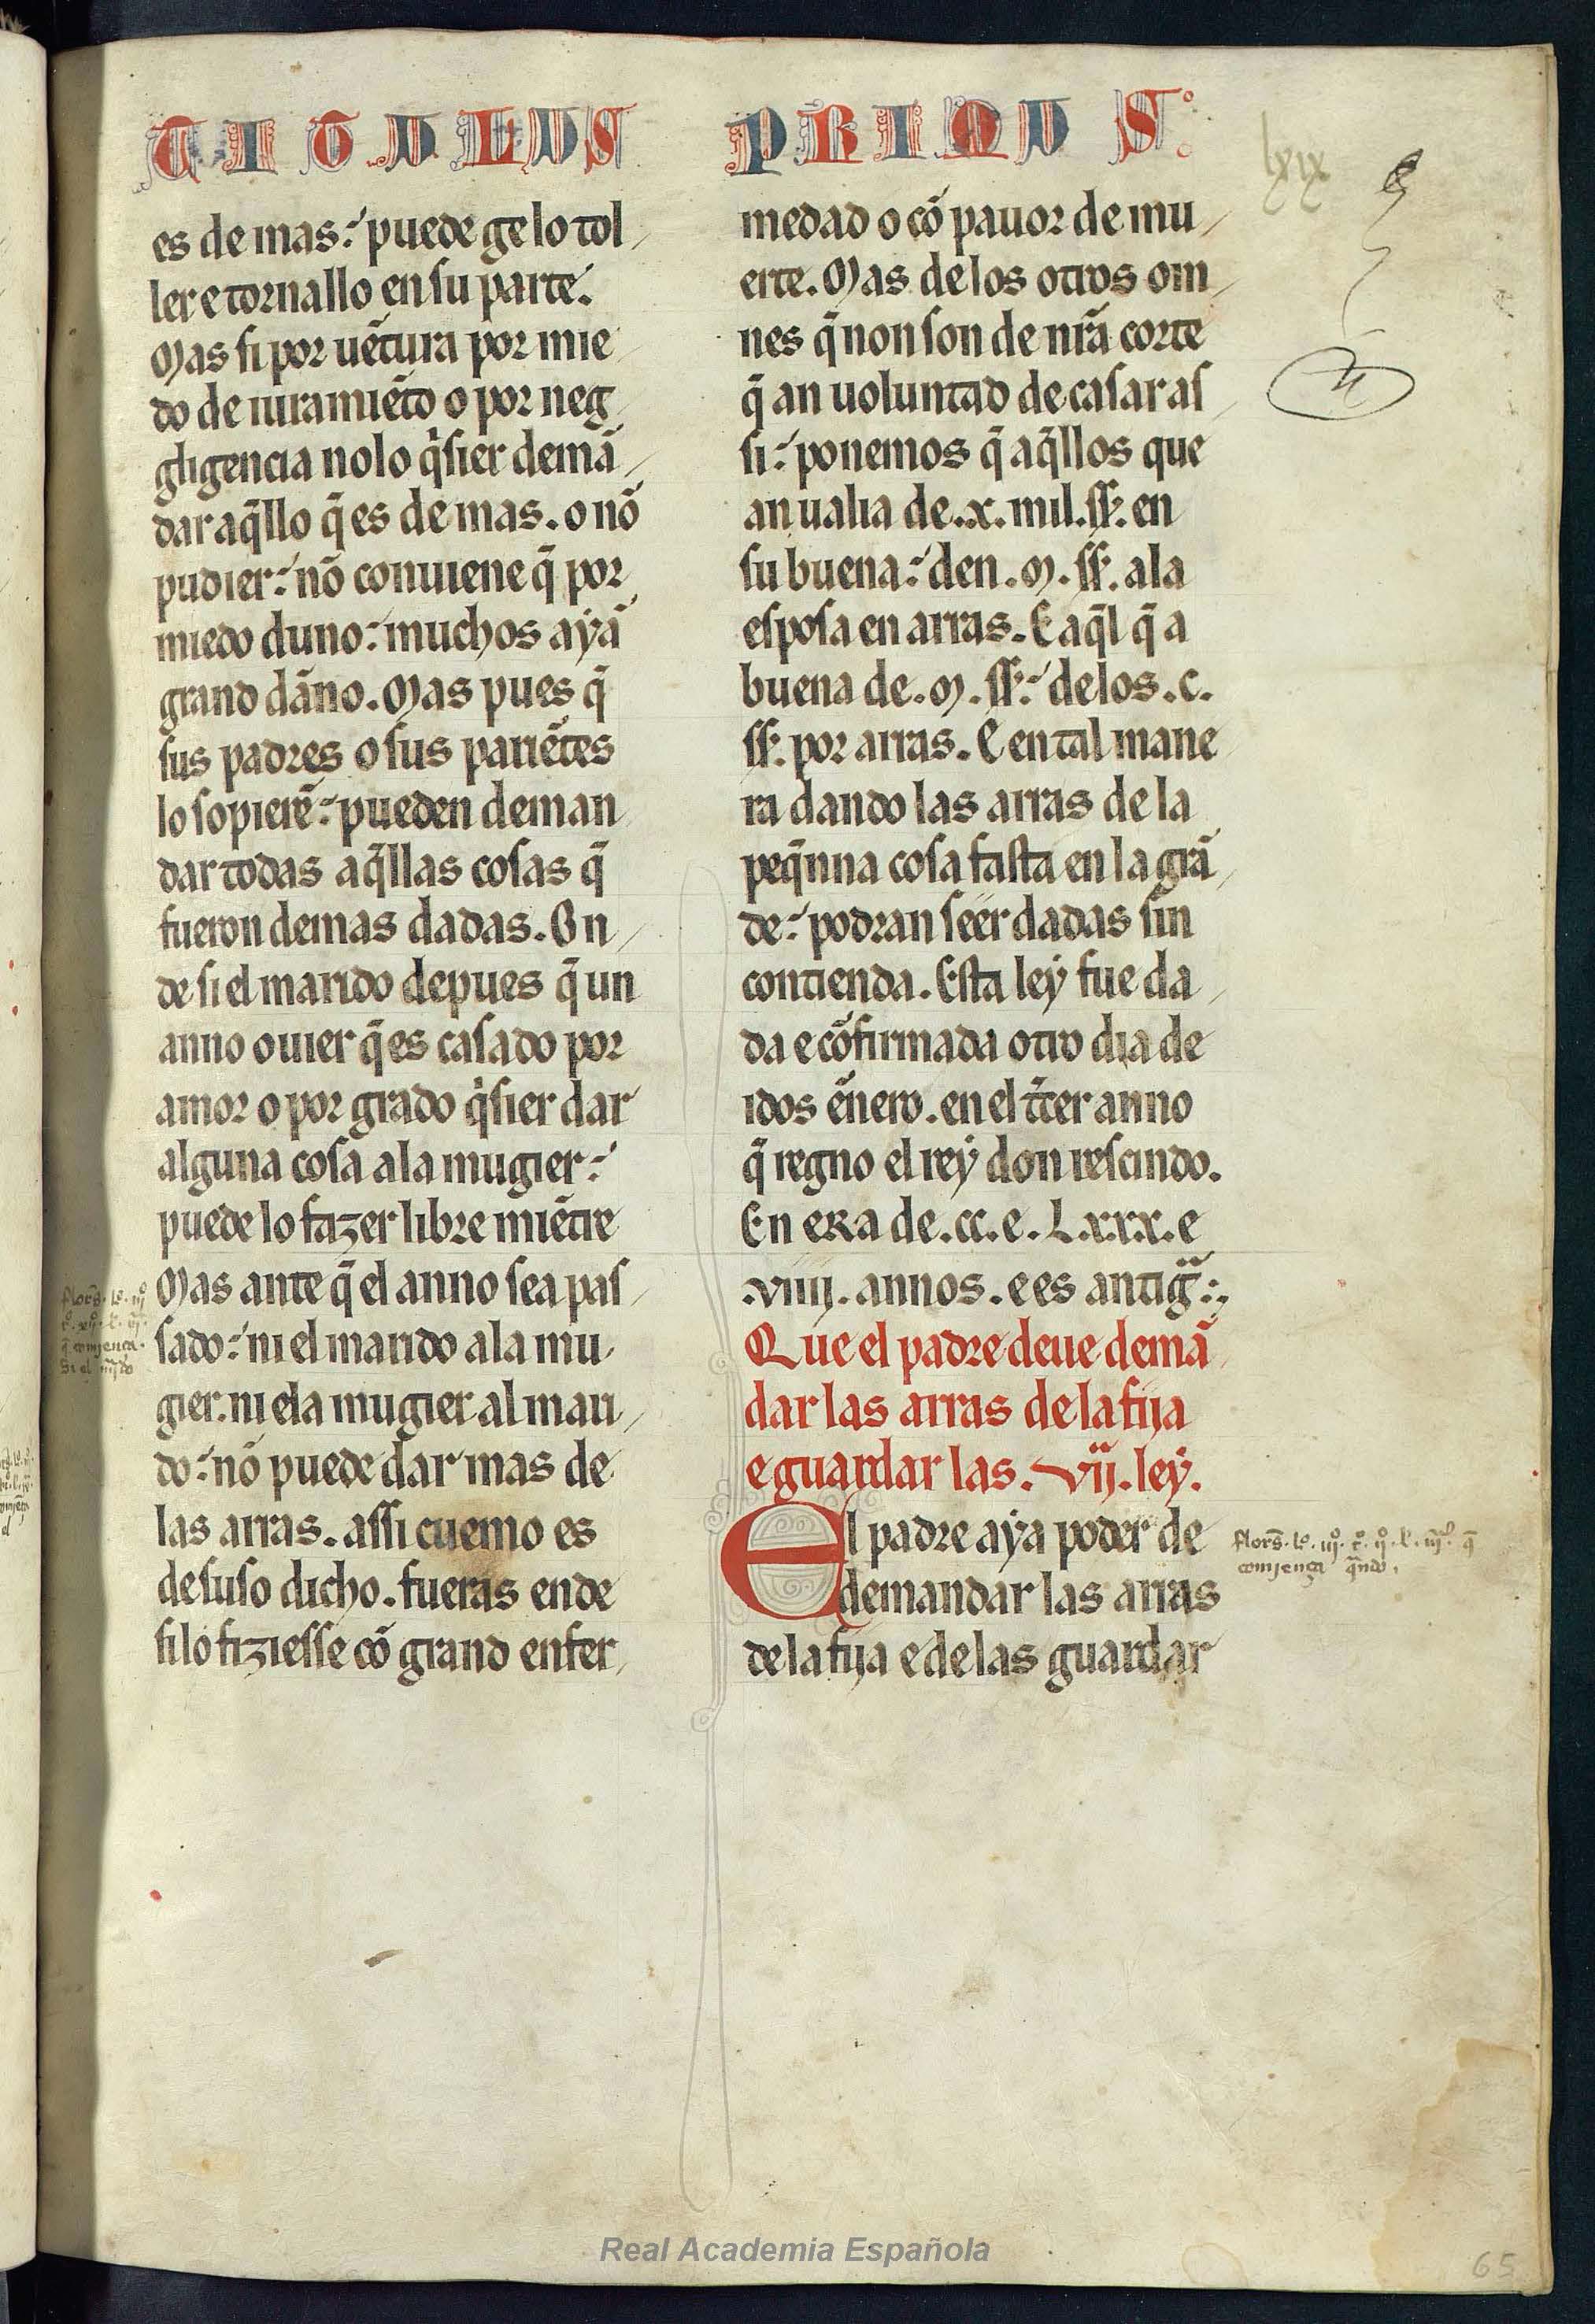 TITULUS PRIMUS
lxix
es de mas: puede ge lo tol
ler e tornallo en su parte.
Mas si por uẽtura por mie
do de iuramiẽto o por neg
gligencia no lo q̃sier demã
dar aq̃llo q̃ es de mas. o nõ
pudier: nõ conuiene q̃ por
miedo duno: muchos ayã
grand dãno. Mas pues q̃
sus padres o sus pariẽtes
lo sopierẽ: pueden deman
dar todas aq̃llas cosas q̃
fueron demas dadas. On
de si el marido depues q̃ un
anno ouier q̃ es casado por
amor o por grado q̃sier dar
alguna cosa a la mugier:
puede lo fazer libre miẽtre
Mas ante q̃ el anno sea pas
sado: ni el marido a la mu
gier. ni ela mugier al mari
do: nõ puede dar mas de
las arras. assi cuemo es
desuso dicho. fueras ende
si lo fiziesse cõ grand enfer
medad o cõ pauor de mu
erte. Mas de los otros om
nes q̃ non son de nr̃a corte
q̃ an uoluntad de casar as
si: ponemos q̃ aq̃llos que
an ualia de .x. mil. ss. en
su buena: den .M. ss. a la
esposa en arras. E aq̃l q̃ a
buena de .M. ss: de los .c.
ss. por arras. E en tal mane
ra dando las arras de la
peq̃nna cosa fasta en la grã
de: podran seer dadas sin
contienda. Esta ley fue da
da e cõfirmada otro dia de
idos ẽnero. en el t̃cer anno
q̃ regno el rey don rescindo.
En era de .cc. e. L.xxx. e
.viiij. annos. e es antigᵃ:
Que el padre deue demã
dar las arras de la fija
e guardar las. vij. ley.
El padre aya poder de
demandar las arras
de la fija e de las guardar
flors̃. lº. iijº
q̃ comjença.
Si el mr̃do
flors̃. lº. iijº. tº. ijº. l. iijª. q̃
comjença qᵃndo.
Real Academia Española
65